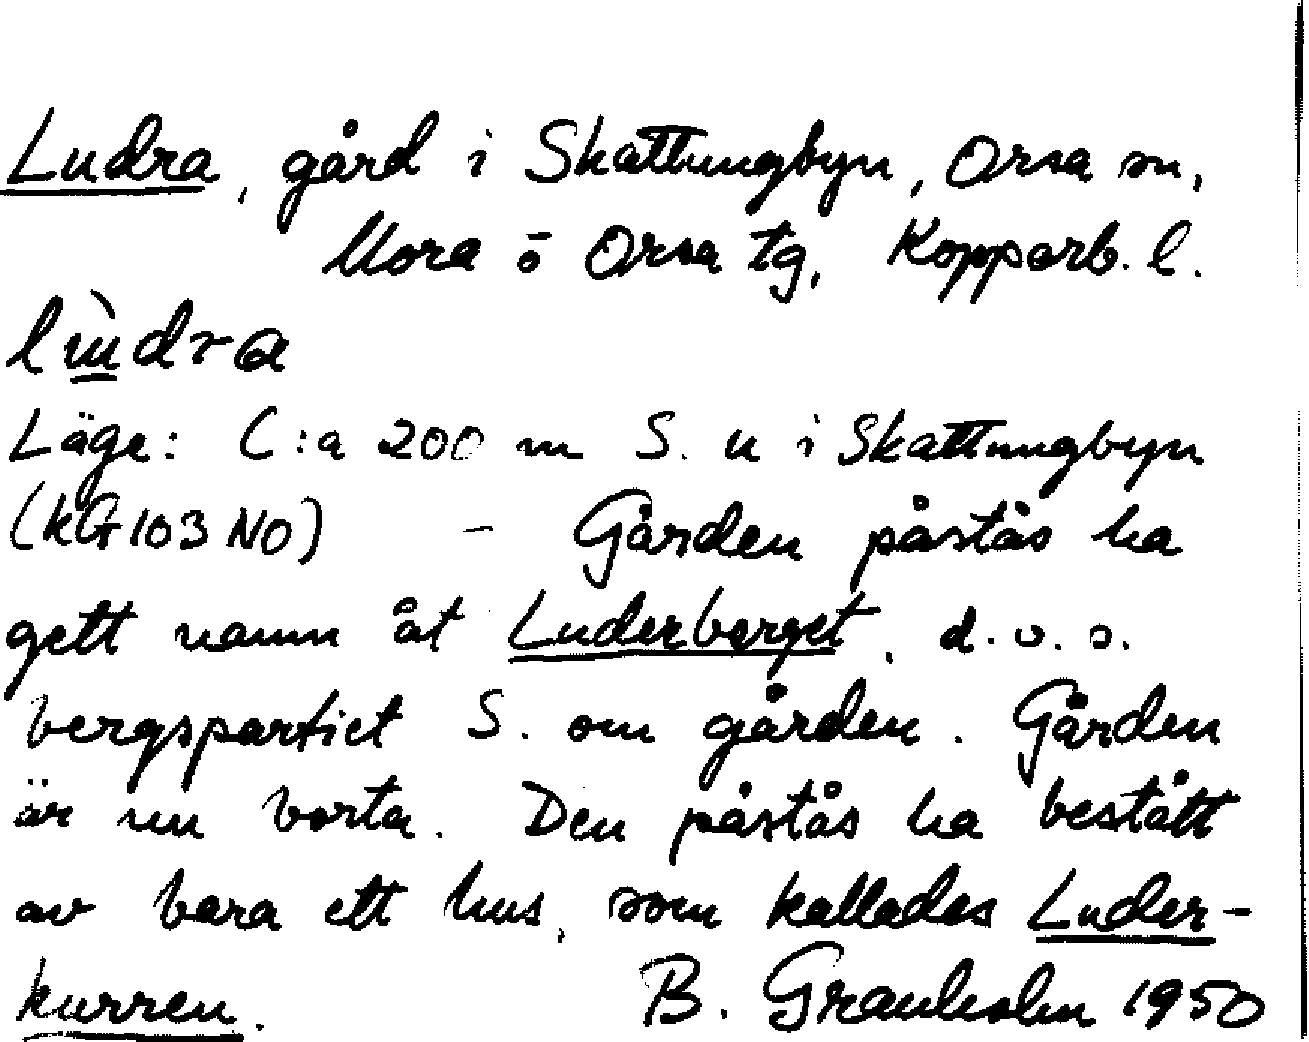 Ludra, gård i Skattungbyn, Orsa sn,
Mora ō Orsa tg, Kopparb. l.
Läge: C:a 200 m S. u i Skattungbyn
(kG 103 NO) - Gården påstås ha
gett namn åt Luderberget, d. v. s.
bergspartiet S. om gården. Gården
är nu borta. Den påstås ha bestått
av bara ett hus, som kallades Luder-
kurren. B. Granholm 1950